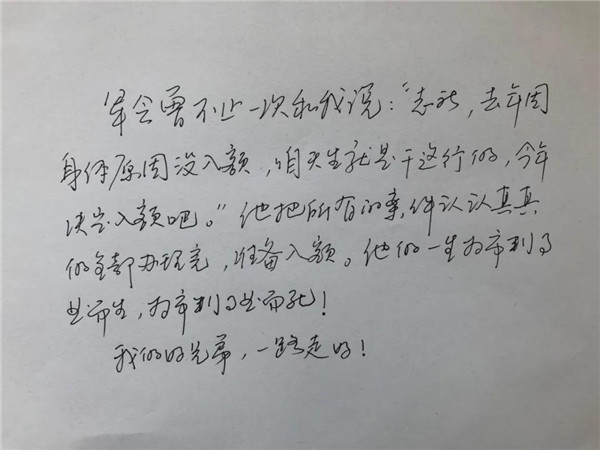 军会曾不止一次和我说：“志延，去年因
身体原因没入额，咱天生就是干这行的，今年
决定入额吧。”他把所有的案件认认真真
的全部办理完，准备入额。他的一生为审判事
业而生，为审判事业而死！
我们的兄弟，一路走好！